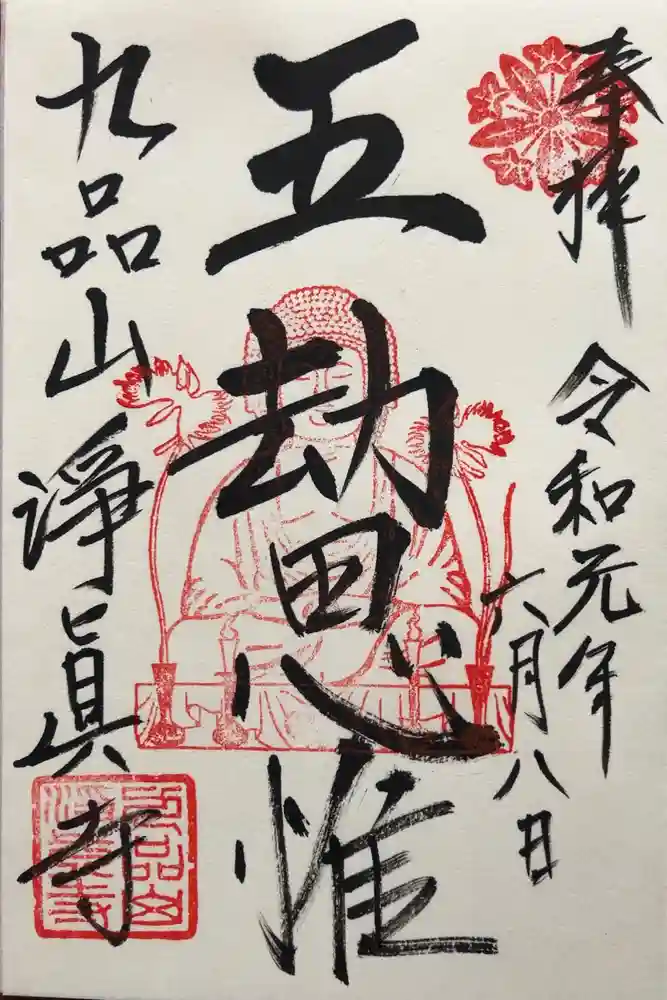 奉拝
令和元年
六月八日
五劫思惟
九品山淨眞寺